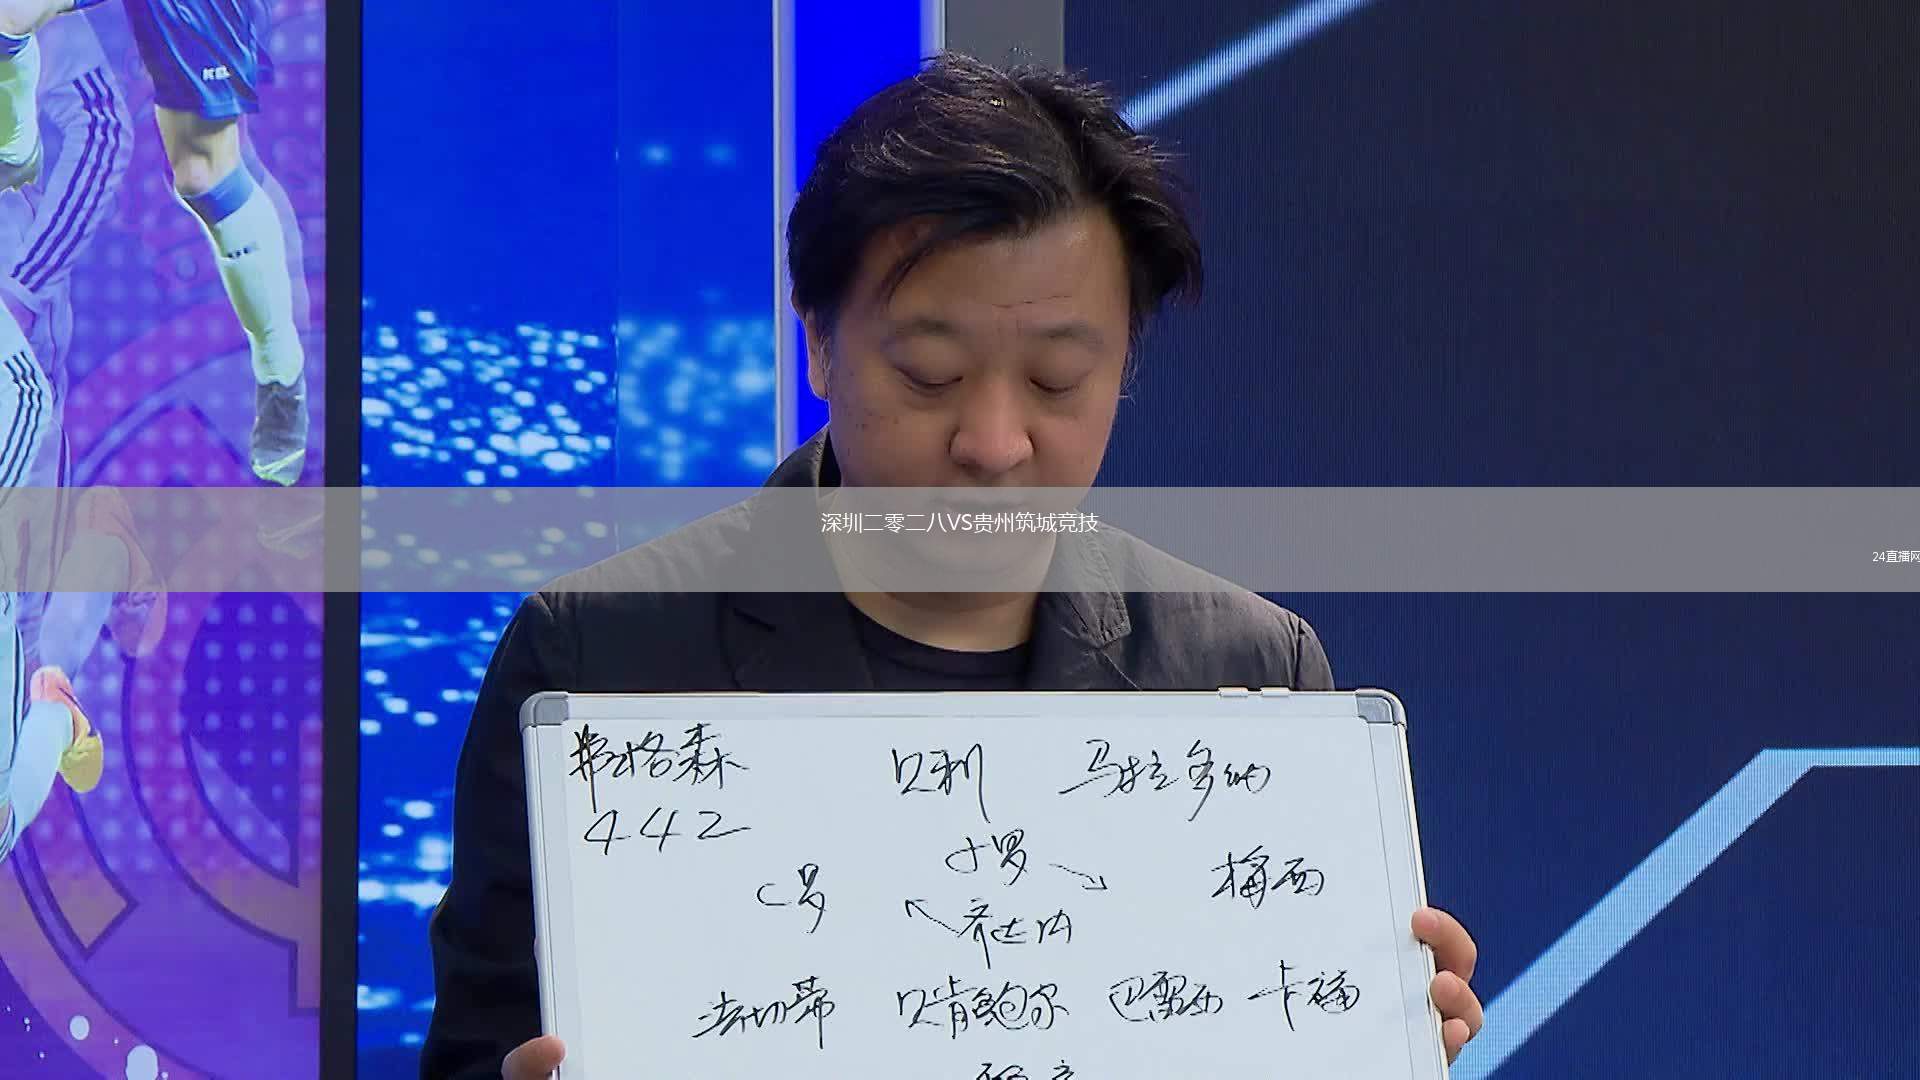 KEL
深圳二零二八VS贵州筑城竞技
24直播网
弗格森 贝利 马拉多纳
442
小罗
C罗 梅西
齐达内
法切蒂 贝肯鲍尔 巴雷西 卡福